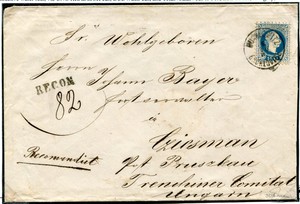 Sr. Wohlgeboren
Herrn Johann Bayer
Forstverwalter
RECOM
82
à
Cziesman
Recomandirt
Pst Pruszkau
Trenchiner Comitat
Ungarn